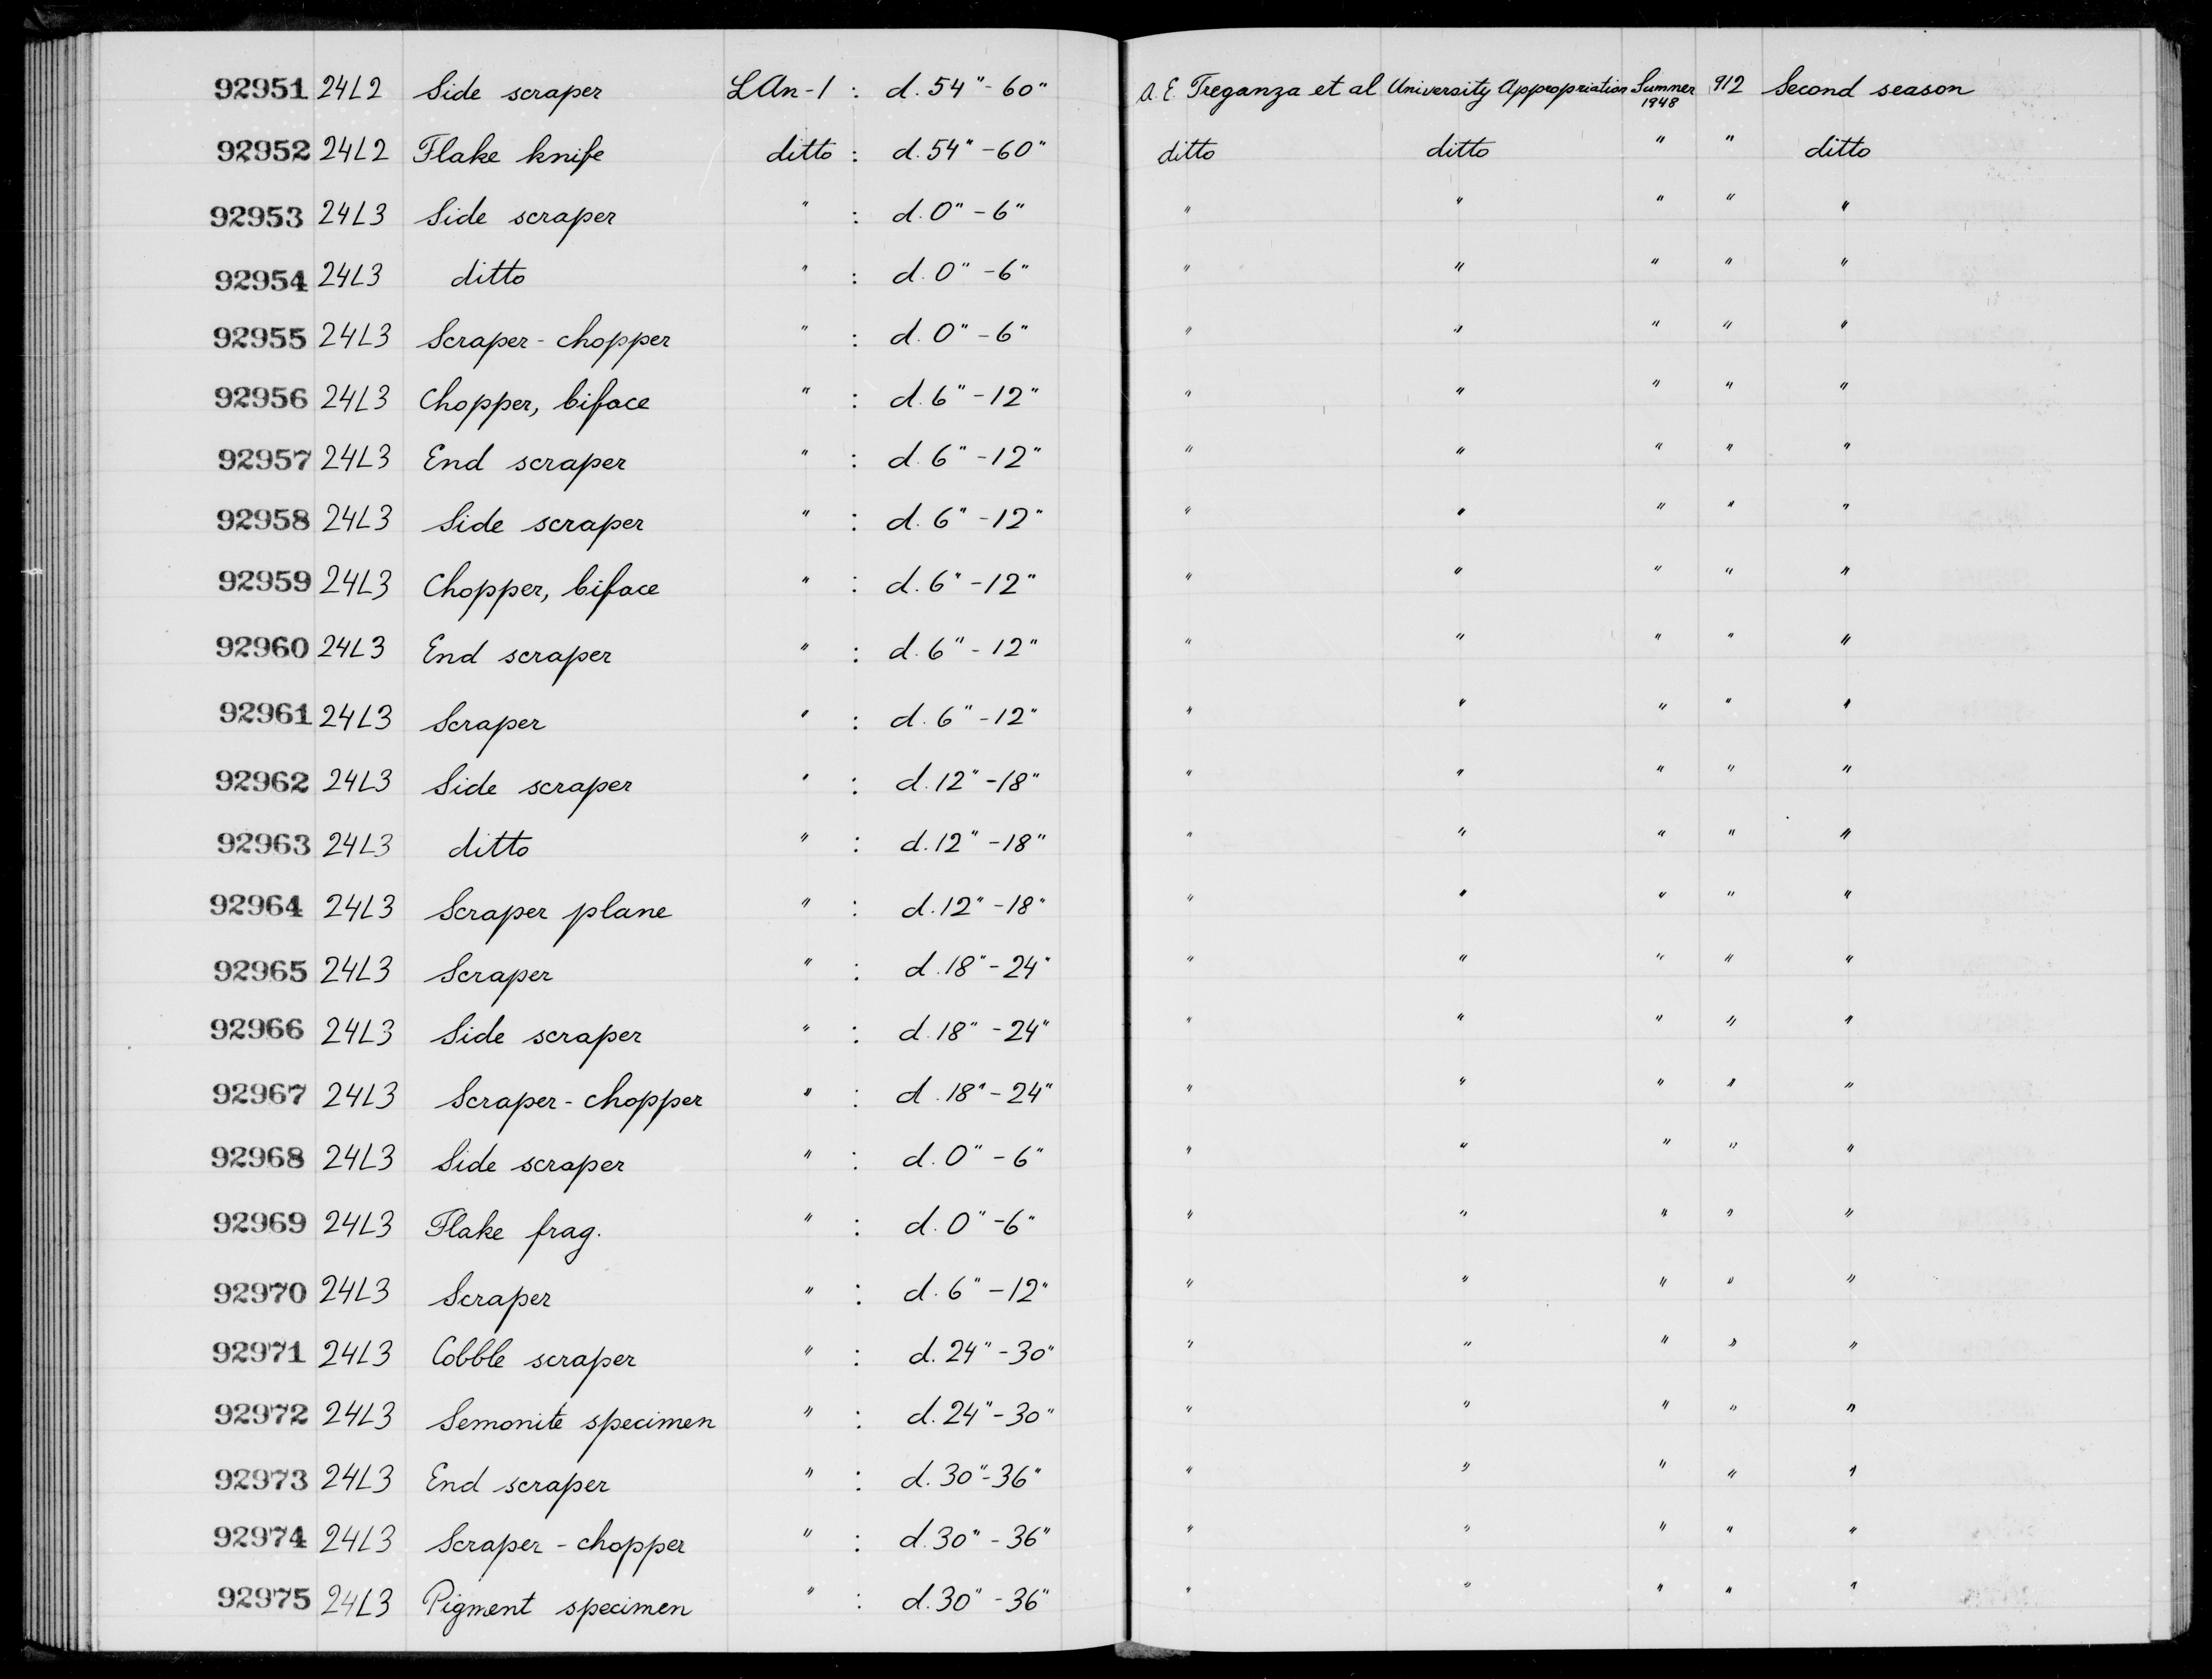 92951 24L2 Side scraper LAn-1 : d. 54"-60" A. E. Treganza et al University Appropriation Summer 1948 912 Second season
92952 24L2 Flake knife ditto : d. 54"-60" ditto ditto " " ditto
92953 24L3 Side scraper " : d. 0"-6" " " " " "
92954 24L3 ditto " : d. 0"-6" " " " " "
92955 24L3 Scraper-chopper " : d. 0"-6" " " " " "
92956 24L3 Chopper, biface " : d. 6"-12" " " " " "
92957 24L3 End scraper " : d. 6"-12" " " " " "
92958 24L3 Side scraper " : d. 6"-12" " " " " "
92959 24L3 Chopper, biface " : d. 6"-12" " " " " "
92960 24L3 End scraper " : d. 6"-12" " " " " "
92961 24L3 Scraper " : d. 6"-12" " " " " "
92962 24L3 Side scraper " : d. 12"-18" " " " " "
92963 24L3 ditto " : d. 12"-18" " " " " "
92964 24L3 Scraper plane " : d. 12"-18" " " " " "
92965 24L3 Scraper " : d. 18"-24" " " " " "
92966 24L3 Side scraper " : d. 18"-24" " " " " "
92967 24L3 Scraper-chopper " : d. 18"-24" " " " " "
92968 24L3 Side scraper " : d. 0"-6" " " " " "
92969 24L3 Flake frag. " : d. 0"-6" " " " " "
92970 24L3 Scraper " : d. 6"-12" " " " " "
92971 24L3 Cobble scraper " : d. 24"-30" " " " " "
92972 24L3 Semonite specimen " : d. 24"-30" " " " " "
92973 24L3 End scraper " : d. 30"-36" " " " " "
92974 24L3 Scraper-chopper " : d. 30"-36" " " " " "
92975 24L3 Pigment specimen " : d. 30"-36" " " " " "